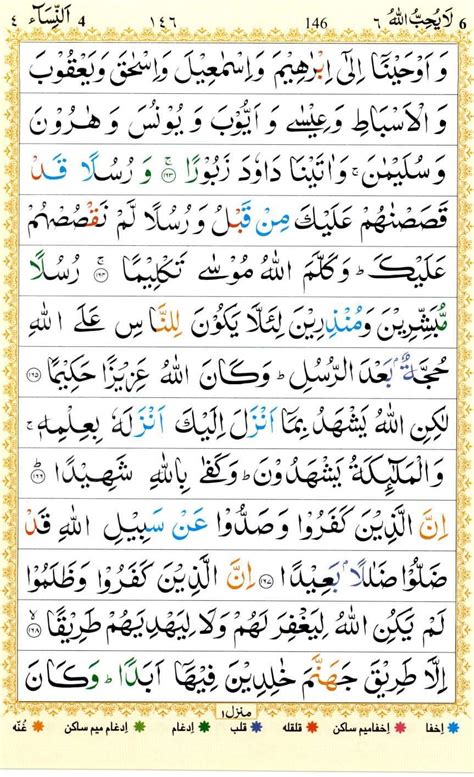 6 لَا یُحِبُّ اللّٰهُ ٦ 146 ١٤٦ 4 اَلنِّسَآء ٤
وَ اَوْحَیْنَاۤ اِلٰۤی اِبْرٰهِیْمَ وَ اِسْمٰعِیْلَ وَ اِسْحٰقَ وَ یَعْقُوْبَ
وَ الْاَسْبَاطِ وَ عِیْسٰی وَ اَیُّوْبَ وَ یُوْنُسَ وَ هٰرُوْنَ
وَ سُلَیْمٰنَ ۚ وَ اٰتَیْنَا دَاوٗدَ زَبُوْرًا ۚ ﴿۱۶۳﴾ وَ رُسُلًا قَدْ
قَصَصْنٰهُمْ عَلَیْكَ مِنْ قَبْلُ وَ رُسُلًا لَّمْ نَقْصُصْهُمْ
عَلَیْكَ ؕ وَ كَلَّمَ اللّٰهُ مُوْسٰی تَكْلِیْمًا ۚ ﴿۱۶۴﴾ رُسُلًا
مُّبَشِّرِیْنَ وَ مُنْذِرِیْنَ لِئَلَّا یَكُوْنَ لِلنَّاسِ عَلَی اللّٰهِ
حُجَّةٌۢ بَعْدَ الرُّسُلِ ؕ وَ كَانَ اللّٰهُ عَزِیْزًا حَكِیْمًا ﴿۱۶۵﴾
لٰكِنِ اللّٰهُ یَشْهَدُ بِمَاۤ اَنْزَلَ اِلَیْكَ اَنْزَلَهٗ بِعِلْمِهٖ ۚ
وَ الْمَلٰٓىِٕكَةُ یَشْهَدُوْنَ ؕ وَ كَفٰی بِاللّٰهِ شَهِیْدًا ؕ ﴿۱۶۶﴾
اِنَّ الَّذِیْنَ كَفَرُوْا وَ صَدُّوْا عَنْ سَبِیْلِ اللّٰهِ قَدْ
ضَلُّوْا ضَلٰلًۢا بَعِیْدًا ﴿۱۶۷﴾ اِنَّ الَّذِیْنَ كَفَرُوْا وَ ظَلَمُوْا
لَمْ یَكُنِ اللّٰهُ لِیَغْفِرَ لَهُمْ وَ لَا لِیَهْدِیَهُمْ طَرِیْقًا ۙ ﴿۱۶۸﴾
اِلَّا طَرِیْقَ جَهَنَّمَ خٰلِدِیْنَ فِیْهَاۤ اَبَدًا ؕ وَ كَانَ
منزل ۱
اِخفا اِخفامیم ساکن قلقله قلب اِدغام اِدغام میم ساکن غُنّه